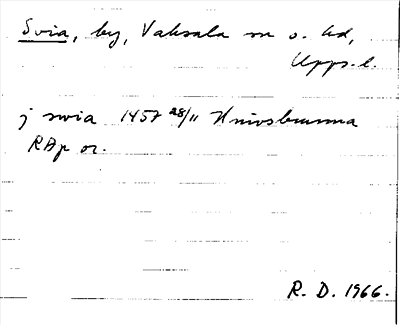 Svia, by, Vaksala sn o. hd,
Upps.l.
j swia 1457 28/11 Knivsbrunna
RAp or.
R. D. 1966.